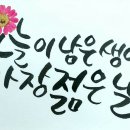 늘이 남은 생
장 젊은 날